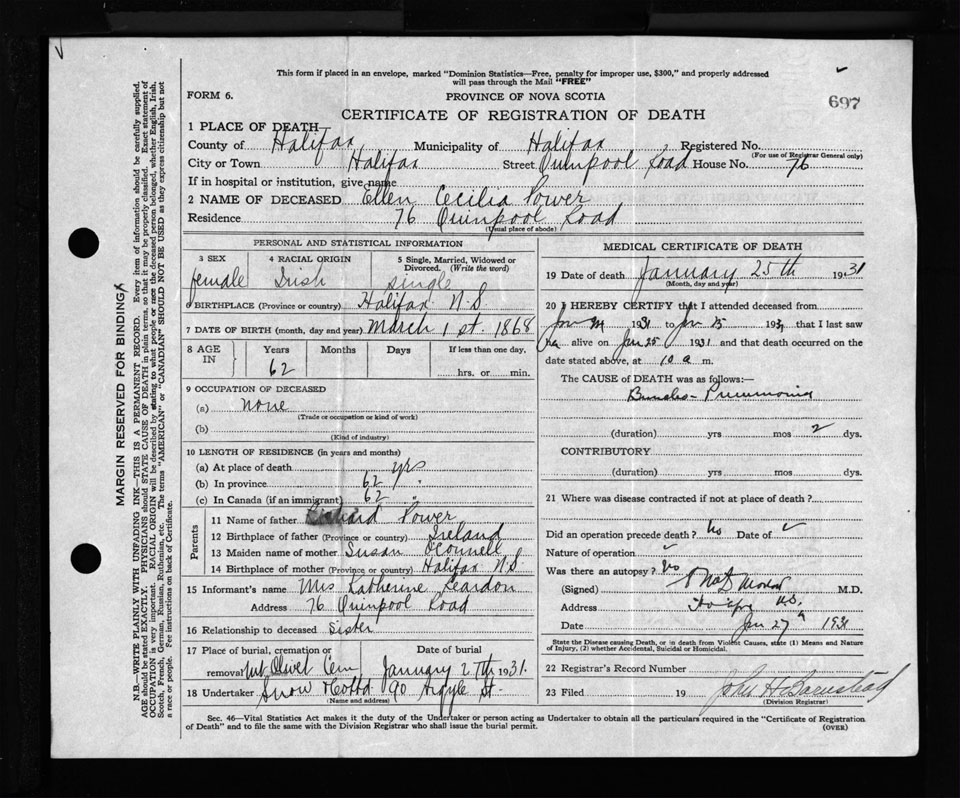 This form if placed in an envelope, marked "Dominion Statistics—Free, penalty for improper use, $300," and properly addressed
will pass through the Mail "FREE"
FORM 6.
PROVINCE OF NOVA SCOTIA
697
CERTIFICATE OF REGISTRATION OF DEATH
1 PLACE OF DEATH
County of Halifax Municipality of Halifax Registered No.
(For use of Registrar General only)
City or Town Halifax Street Quinpool Road House No. 76
If in hospital or institution, give name
2 NAME OF DECEASED Ellen Cecilia Power
Residence 76 Quinpool Road
(Usual place of abode)
PERSONAL AND STATISTICAL INFORMATION
3 SEX 4 RACIAL ORIGIN 5 Single, Married, Widowed or
Divorced. (Write the word)
female Irish single
6 BIRTHPLACE (Province or country) Halifax N.S.
7 DATE OF BIRTH (month, day and year) March 1st. 1868
8 AGE IN Years Months Days If less than one day.
62 hrs. or min.
9 OCCUPATION OF DECEASED
(a) none
(Trade or occupation or kind of work)
(b)
(Kind of industry)
10 LENGTH OF RESIDENCE (in years and months)
(a) At place of death yrs
(b) In province 62 "
(c) In Canada (if an immigrant) 62 "
Parents
11 Name of father Richard Power
12 Birthplace of father (Province or country) Ireland
13 Maiden name of mother Susan O'Connell
14 Birthplace of mother (Province or country) Halifax N.S.
15 Informant's name Mrs Katherine Reardon
Address 76 Quinpool Road
16 Relationship to deceased Sister
17 Place of burial, cremation or Date of burial
removal Mt Olivet Cem January 27th 1931.
18 Undertaker Snow & Co Ltd 90 Argyle St.
(Name and address)
MEDICAL CERTIFICATE OF DEATH
19 Date of death January 25th 1931
(Month, day and year)
20 I HEREBY CERTIFY that I attended deceased from
Jan 1931 to Jan 25 1931 that I last saw
her alive on Jan 25 1931 and that death occurred on the
date stated above, at 10 a m.
The CAUSE OF DEATH was as follows:—
Broncho-Pneumonia
(duration) yrs mos 2 dys.
CONTRIBUTORY
(duration) yrs mos dys.
21 Where was disease contracted if not at place of death?
Did an operation precede death? No Date of
Nature of operation
Was there an autopsy? No
(Signed) M.D.
Address N.S.
Date Jan 27 1931
State the Disease causing Death, or in death from Violent Causes, state (1) Means and Nature
of Injury, (2) whether Accidental, Suicidal or Homicidal.
22 Registrar's Record Number
23 Filed 19 John H Barnstead
(Division Registrar)
Sec. 46—Vital Statistics Act makes it the duty of the Undertaker or person acting as Undertaker to obtain all the particulars required in the "Certificate of Registration
of Death" and to file the same with the Division Registrar who shall issue the burial permit.
(OVER)
MARGIN RESERVED FOR BINDING
N.B.—WRITE PLAINLY WITH UNFADING INK—THIS IS A PERMANENT RECORD. Every item of information should be carefully supplied.
AGE should be stated EXACTLY. PHYSICIANS should STATE CAUSE OF DEATH in plain terms so that it may be properly classified. Exact statement of
OCCUPATION is very important. RACIAL ORIGIN will be described by stating to what people or race the deceased person belonged, whether English, Irish,
Scotch, French, German, Russian, Ruthenian, etc. The terms "AMERICAN" or "CANADIAN" SHOULD NOT BE USED as they express citizenship but not
a race or people. See instructions on back of Certificate.